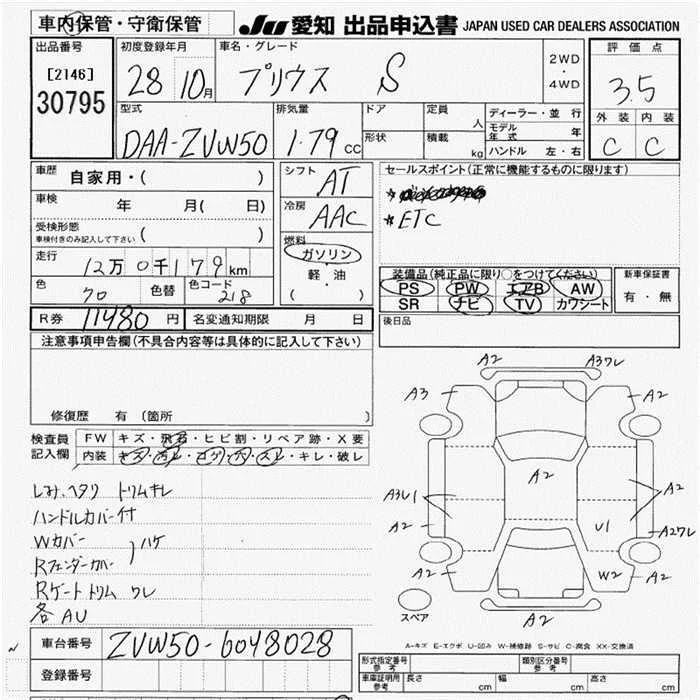 車内保管・守衛保管
JU 愛知 出品申込書 JAPAN USED CAR DEALERS ASSOCIATION
出品番号
[2146]
30795
初度登録年月
28 10月
車名・グレード
プリウス S
2WD
・
4WD
評価点
3.5
外装 内装
C C
型式
DAA-ZVW50
排気量
1.79 CC
ドア
形状
定員
人
積載
kg
ディーラー・並行
モデル年式 年
ハンドル 左・右
車歴
自家用・( )
車検
年 月( 日)
受検形態
車検付きのみ記入して下さい ( )
走行
12万0千179km
色
70
色替
色コード
218
シフト
AT
冷房
AAC
燃料
ガソリン
・
軽・油
( )
セールスポイント(正常に機能するものに限ります)
*
* ETC
装備品(純正品に限り○をつけてください)
PS PW エアB AW
SR ナビ TV カワシート
新車保証書
有・無
R券 11480 円
名変通知期限 月 日
後日品
注意事項申告欄(不具合内容等は具体的に記入して下さい)
修復歴 有(箇所 )
検査員
記入欄
FW キズ・飛石・ヒビ割・リペア跡・X要
内装 キズ・汚レ・コゲ・穴・スレ・キレ・破レ
しみ、ヘタリ トリムキレ
ハンドルカバー付
Wカバー
Rフェンダーカバー
ハゲ
Rゲートトリム ワレ
各AU
A2 A3ワレ
A3 A2
A2
A3レ1 A2
A2 U1 A2ワレ
A2 W2 A2
A2
スペア
A-キズ E-エクボ U-凹み W-補修跡 S-サビ C-腐食 XX-交換済
車台番号
ZVW50-6048028
登録番号
形式指定番号
参考
類別区分番号
参考
車庫証明用
参考
長さ cm 幅 cm 高さ cm